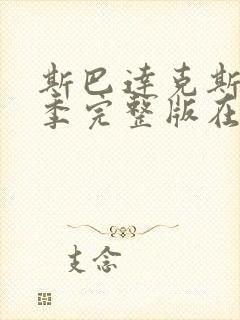 斯巴达克斯
季完整版在
支念